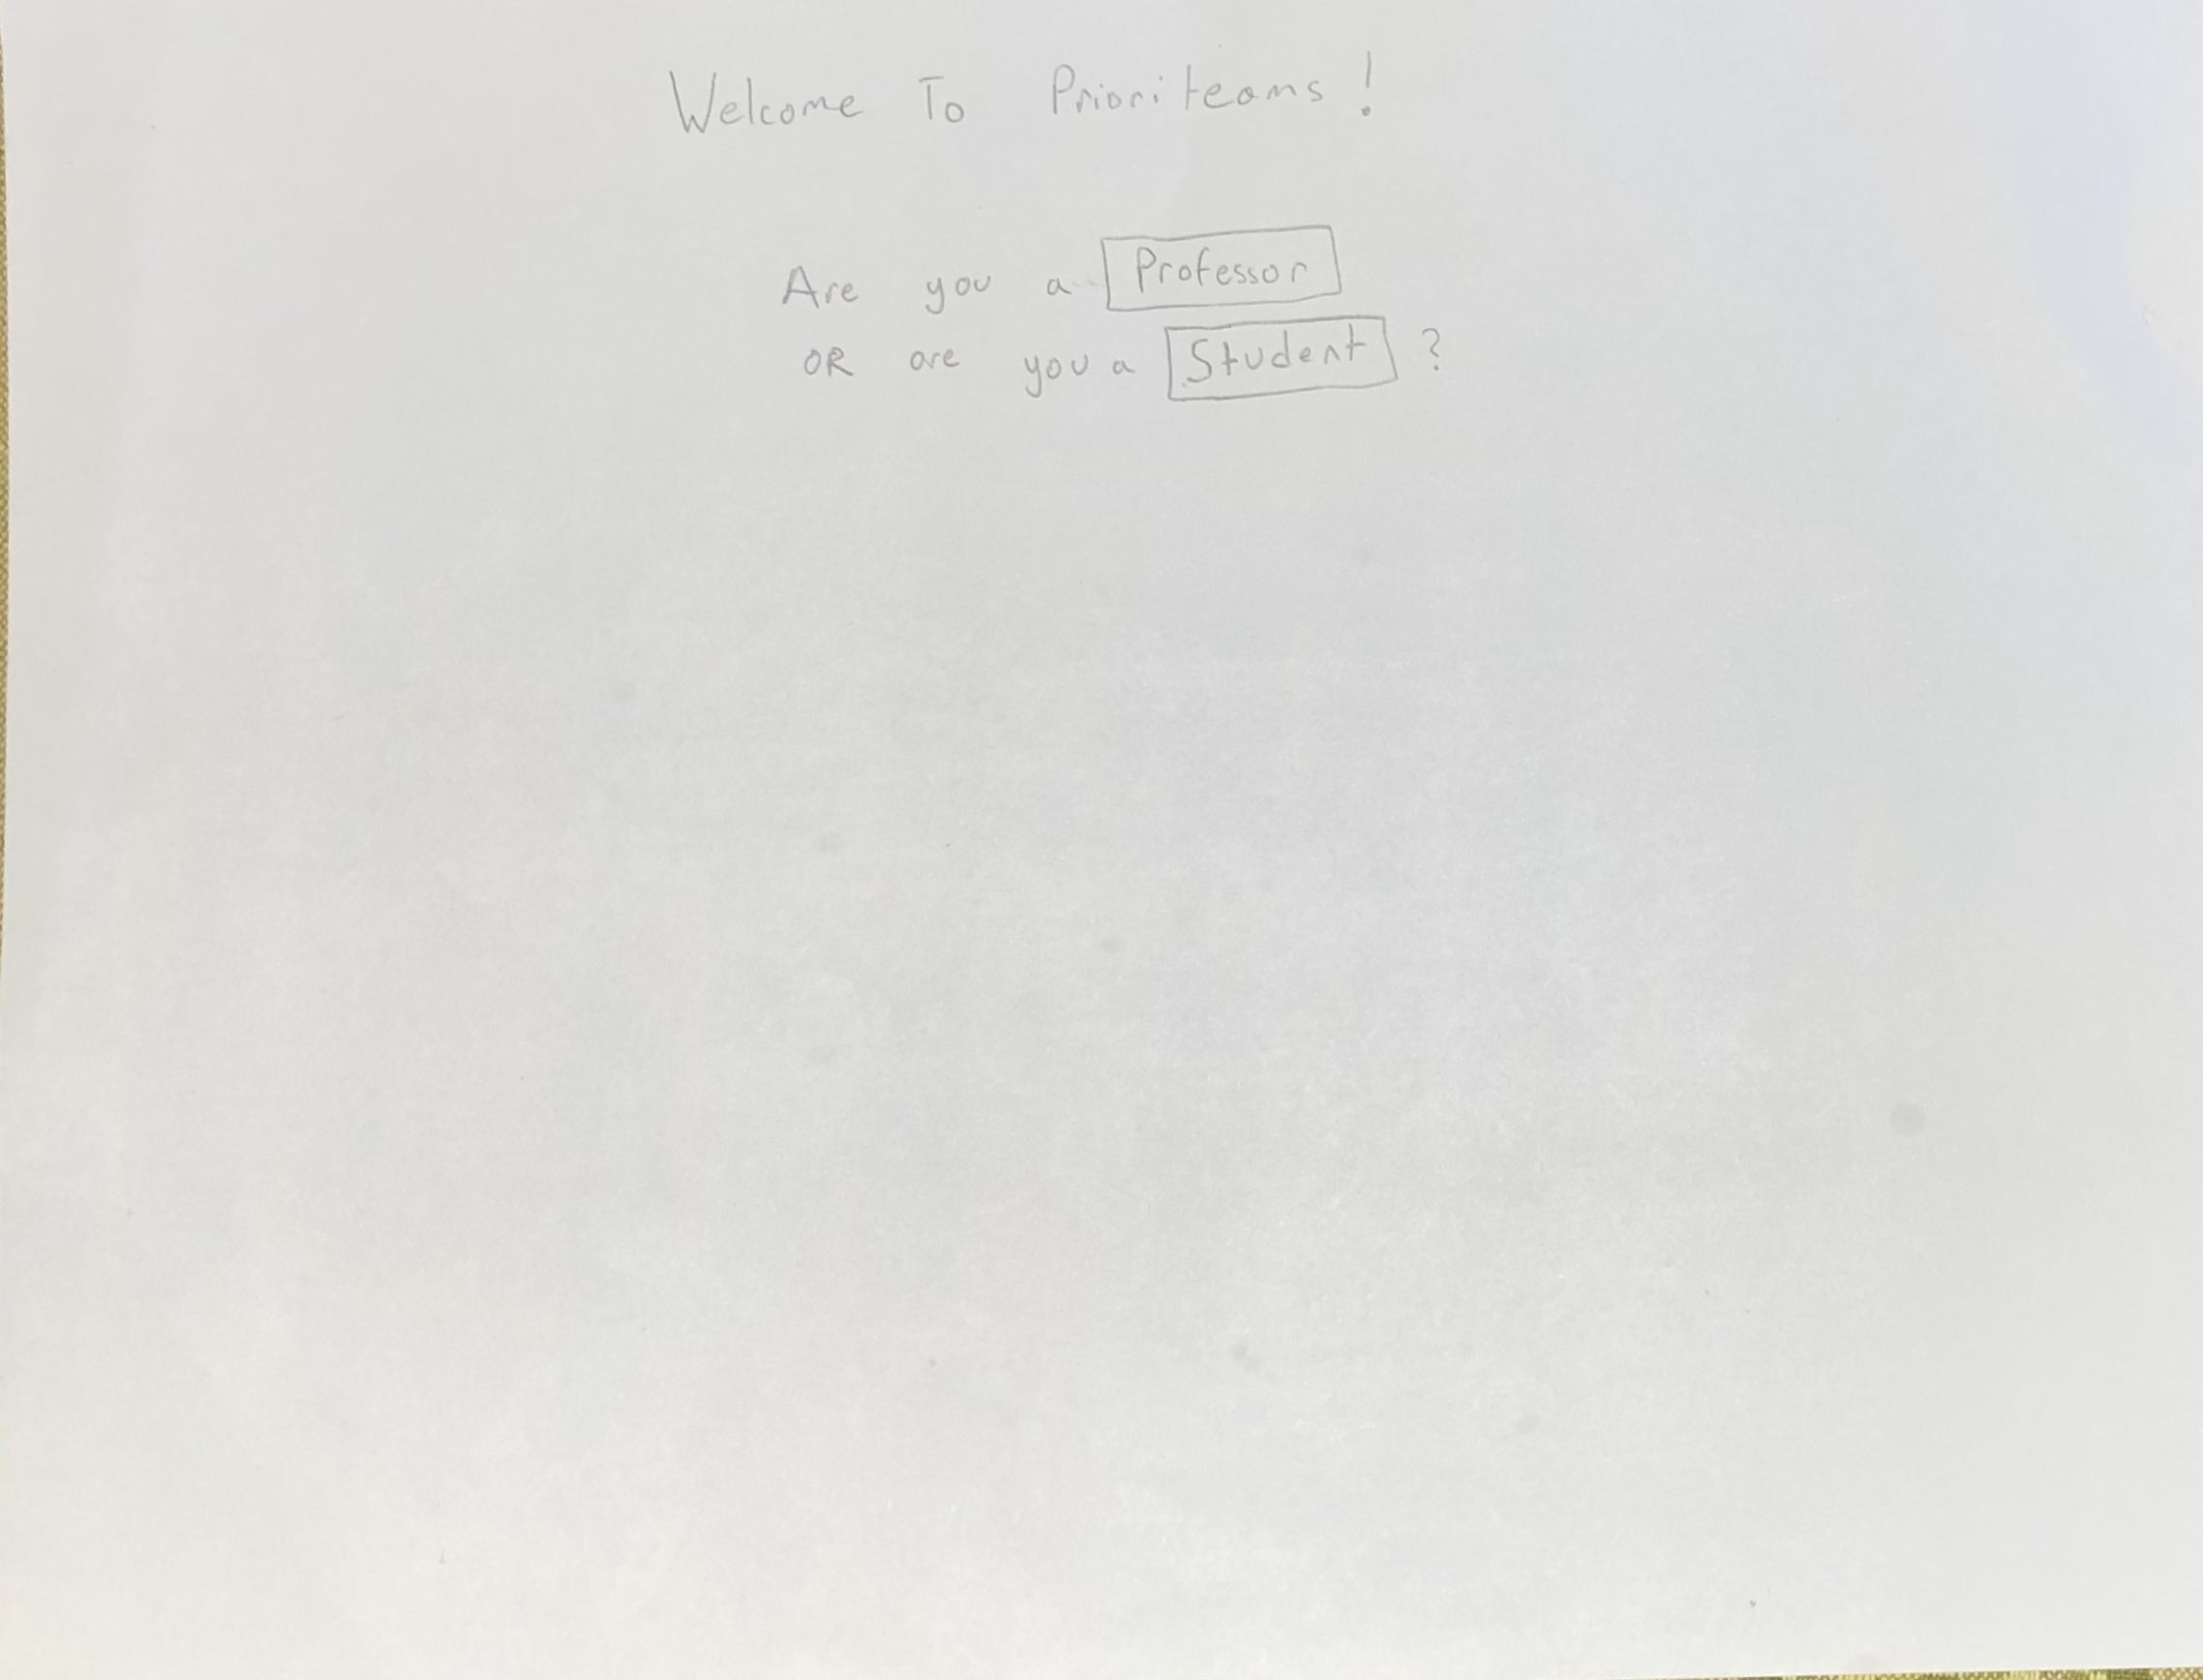 Welcome To Prioriteams!
Are you a Professor
OR are you a Student ?